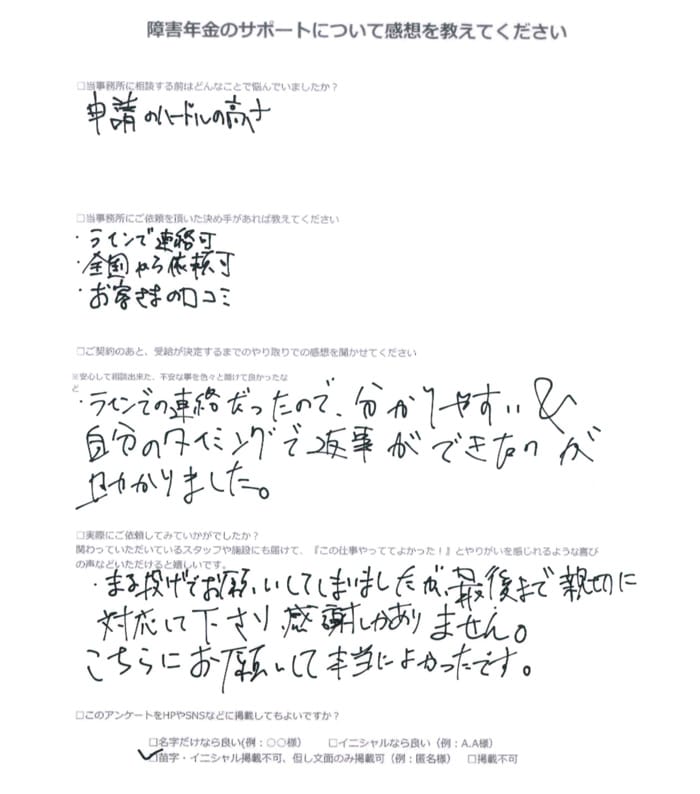 障害年金のサポートについて感想を教えてください
□当事務所に相談する前はどんなことで悩んでいましたか？
申請のハードルの高さ
□当事務所にご依頼を頂いた決め手があれば教えてください
・ラインで連絡可
・全国から依頼可
・お客さまの口コミ
□ご契約のあと、受給が決定するまでのやり取りでの感想を聞かせてください
※安心して相談出来た、不安な事を色々と聞けて良かったな
ど
・ラインでの連絡だったので、分かりやすい＆
自分のタイミングで返事ができたのが
助かりました。
□実際にご依頼してみていかがでしたか？
関わっていただいているスタッフや施設にも届けて、『この仕事やっててよかった！』とやりがいを感じれるような喜び
の声などいただけると嬉しいです。
・まる投げでお願いしてしまいましたが、最後まで親切に
対応して下さり、感謝しかありません。
こちらにお願いして本当によかったです。
□このアンケートをHPやSNSなどに掲載してもよいですか？
□名字だけなら良い(例：○○様) □イニシャルなら良い（例：A.A様）
✓□苗字・イニシャル掲載不可、但し文面のみ掲載可（例：匿名様） □掲載不可